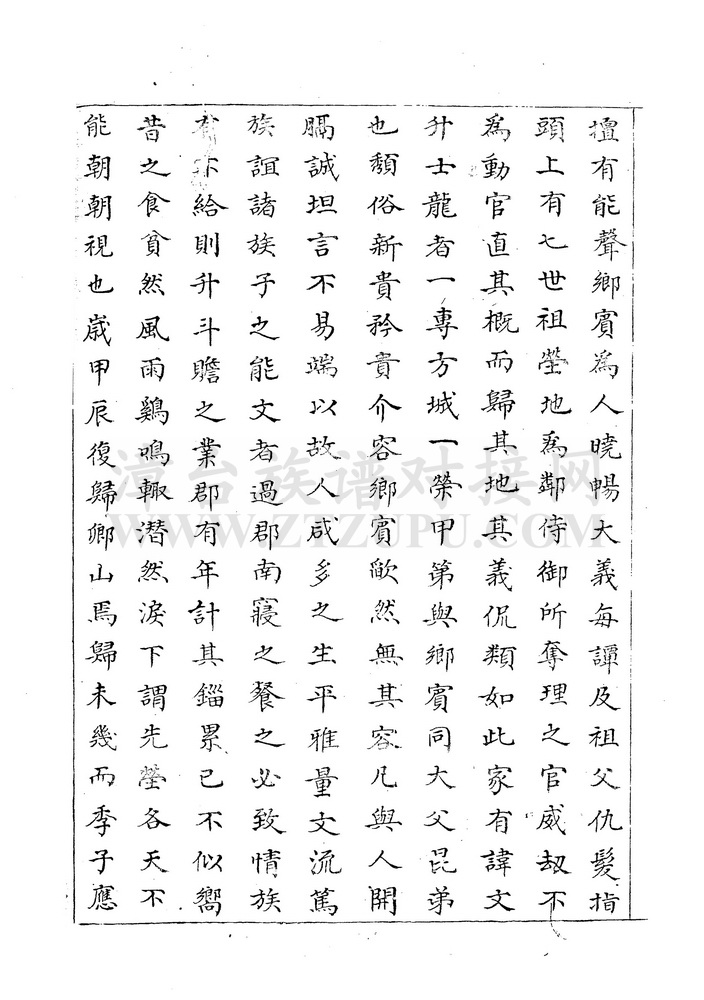 擅有能聲鄉賓為人曉暢大義每譚及祖父仇髮指
頭上有七世祖塋地為鄰侍御所奪理之官威刼不
為動官直其概而歸其地其義侃類如此家有諱文
升士龍者一專方城一榮甲第與鄉賓同大父昆弟
也頽俗新貴矜貴介容鄉賓歉然無其容凡與人開
膈誠坦言不易端以故人咸多之生平雅量文流篤
族誼諸族子之能文者過郡南寢之餐之必致情族
有不給則升斗贍之業郡有年計其錙累已不似嚮
昔之食貧然風雨鷄鳴輙潸然淚下謂先塋各天不
能朝朝視也嵗甲辰復歸鄉山焉歸未幾而季子應
漳台族谱对接网
WWW.ZTZUPU.COM